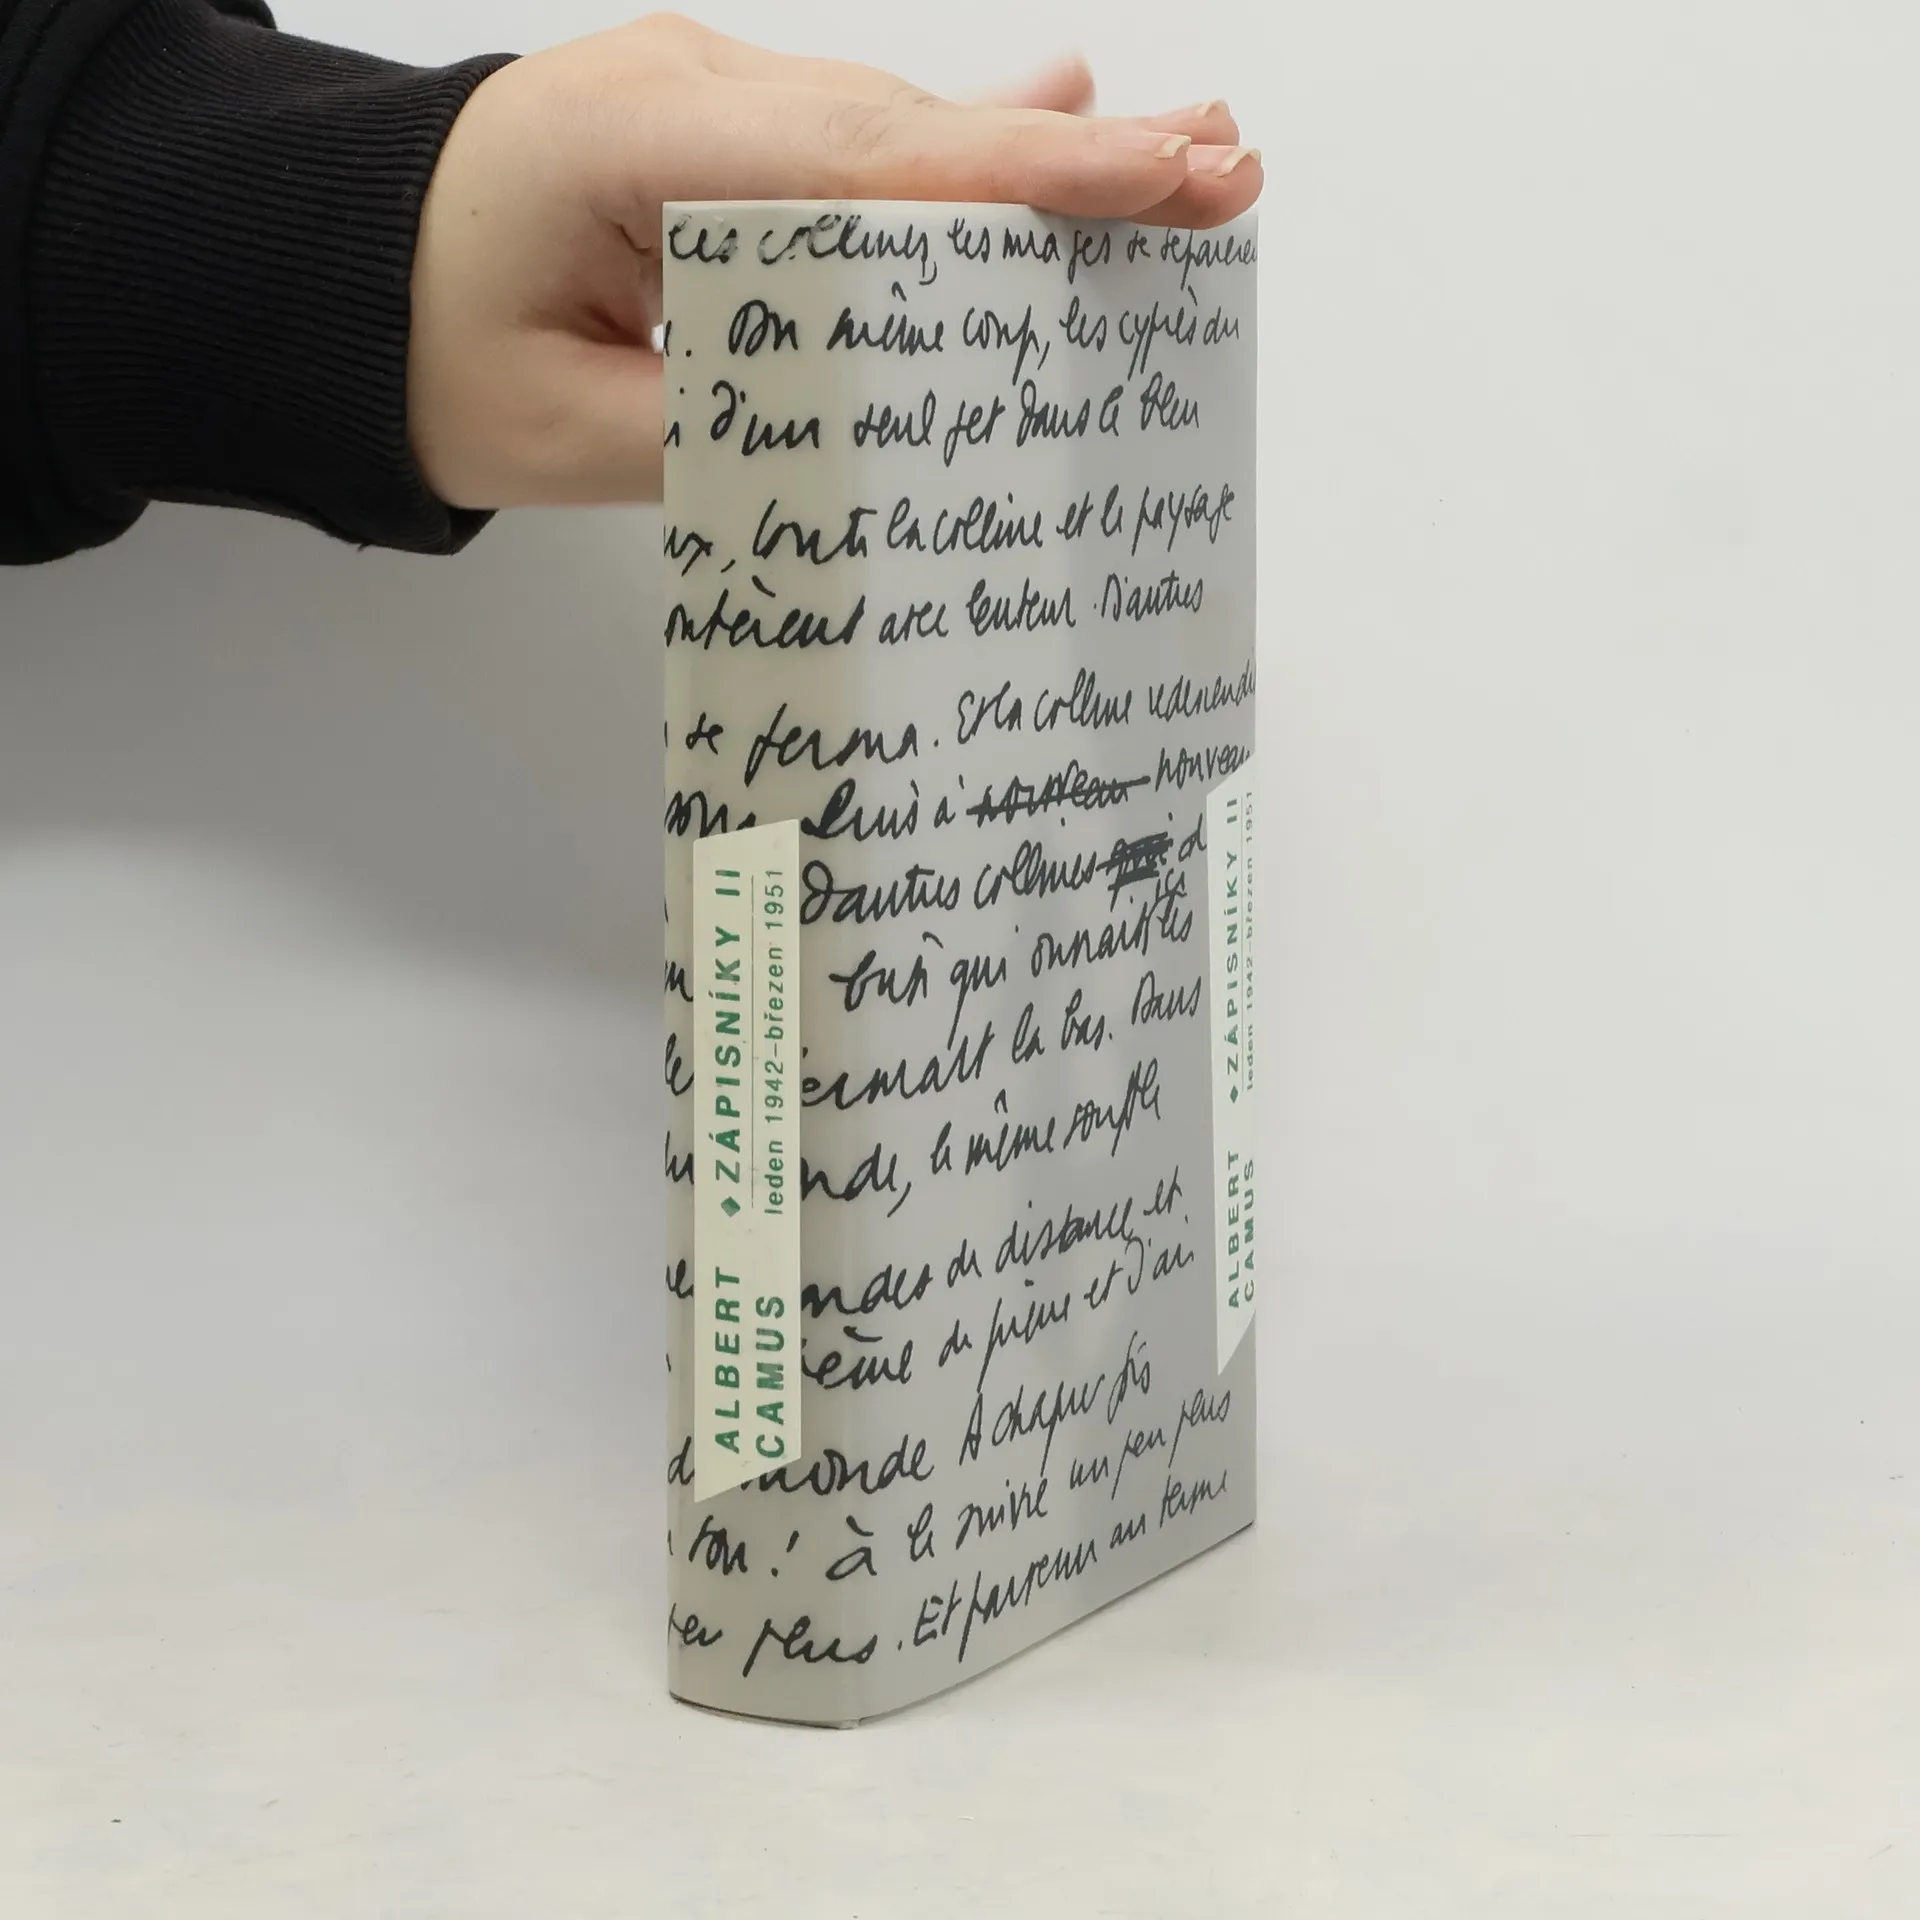 les collines, les nuages se séparèren
. Du même coup, les cyprès du
d'un seul jet dans le bleu
ux, toute la colline et le paysage
ontèrent avec lenteur. D'autres
se ferma. Et la colline redescendi
Puis à nouveau nouveau
d'autres collines qui d
qui connaît les
ermait là bas. Dans
nde, le même souffle
ndes de distance et
ème de pierre et d'air
monde A chaque fois
son ! à le suivre un peu plus
peu plus. Et parvenu au terme
ALBERT
CAMUS
◆ZÁPISNÍKY II
leden 1942–březen 1951
ALBERT
CAMUS
◆ZÁPISNÍKY II
leden 1942–březen 1951